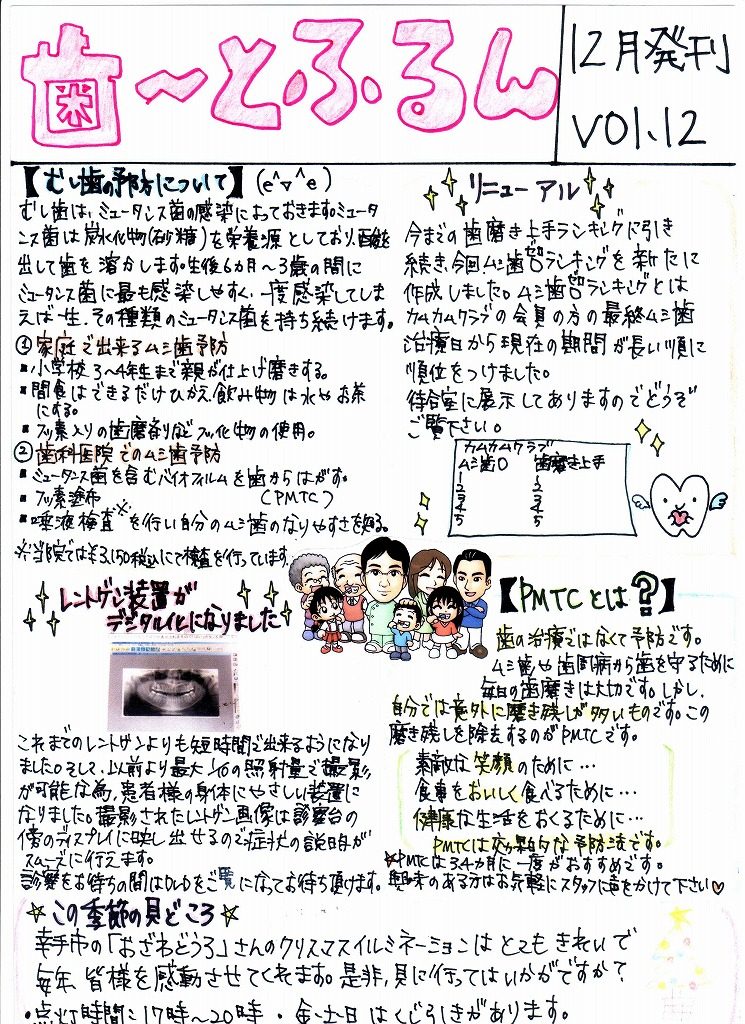 歯〜とふるん
12月発刊
VOl.12
【むし歯の予防について】(e^▽^e)
むし歯は、ミュータンス菌の感染によっておきます。ミュータ
ンス菌は炭水化物(砂糖)を栄養源としており、酸を
出して歯を溶かします。生後6カ月〜3歳の間に
ミュータンス菌に最も感染しやすく、一度感染してしま
えば一生、その種類のミュータンス菌を持ち続けます。
①家庭で出来るムシ歯予防
▪小学校3〜4年生まで親が仕上げ磨きする。
▪間食はできるだけひかえ、飲み物は水やお茶
にする。
▪フッ素入りの歯磨剤などフッ化物の使用。
②歯科医院でのムシ歯予防
▪ミュータンス菌を含むバイオフィルムを歯からはがす。
▪フッ素塗布 (PMTC)
▪唾液検査※を行い自分のムシ歯のなりやすさを知る。
※当院では¥3,150税込にて検査を行っています。
リニューアル
今までの歯磨き上手ランキングに引き
続き、今回ムシ歯ゼロランキングを新たに
作成しました。ムシ歯ゼロランキングとは
カムカムクラブの会員の方の最終ムシ歯
治療日から現在の期間が長い順に
順位をつけました。
待合室に展示してありますのでどうぞ
ご覧下さい。
カムカムクラブ
ムシ歯0 歯磨き上手
1 1
2 2
3 3
4 4
5 5
レントゲン装置が
デジタル化になりました
これまでのレントゲンよりも短時間で出来るようになり
ました。そして、以前より最大1/10の照射量で撮影
が可能な為、患者様の身体にやさしい装置に
なりました。撮影されたレントゲン画像は診察台の
傍のディスプレイに映し出せるので症状の説明が
スムーズに行えます。
診察をお待ちの間はDVDをご覧になってお待ち頂けます。
【PMTCとは?】
歯の治療ではなくて予防です。
ムシ歯や歯周病から歯を守るために
毎日の歯磨きは大切です。しかし、
自分では意外に磨き残しが多いものです。この
磨き残しを除去するのがPMTCです。
素敵な笑顔のために…
食事をおいしく食べるために…
健康な生活をおくるために…
PMTCは効果的な予防法です。
★PMTCは3,4カ月に一度がおすすめです。
興味のある方はお気軽にスタッフに声をかけて下さい♡
☆この季節の見どころ☆
幸手市の「おざわどうろ」さんのクリスマスイルミネーションはとてもきれいで
毎年、皆様を感動させてくれます。是非、見に行ってはいかがですか?
・点灯時間:17時〜20時 ・金・土・日はくじ引きがあります。